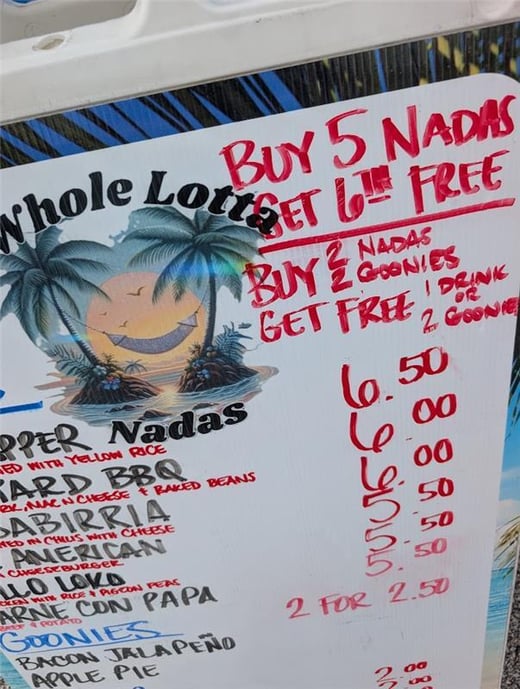 BUY 5 NADAS
GET 6TH FREE
Whole Lotta
BUY 2 NADAS
2 GOONIES
GET FREE 1 DRINK
OR
2 GOONIE
Nadas
PPER 6.50
ED WITH YELLOW RICE
ARD BBQ 6 00
RK, MAC N CHEESE & BAKED BEANS
ABIRRIA 6 00
ED IN CHILIS WITH CHEESE
AMERICAN 5.50
CHEESEBURGER
LLO LOKO 5.50
KEN WITH RICE & PIGEON PEAS
ARNE CON PAPA 5.50
BEEF & POTATO
GOONIES 2 FOR 2.50
BACON JALAPEÑO
APPLE PIE 2.00